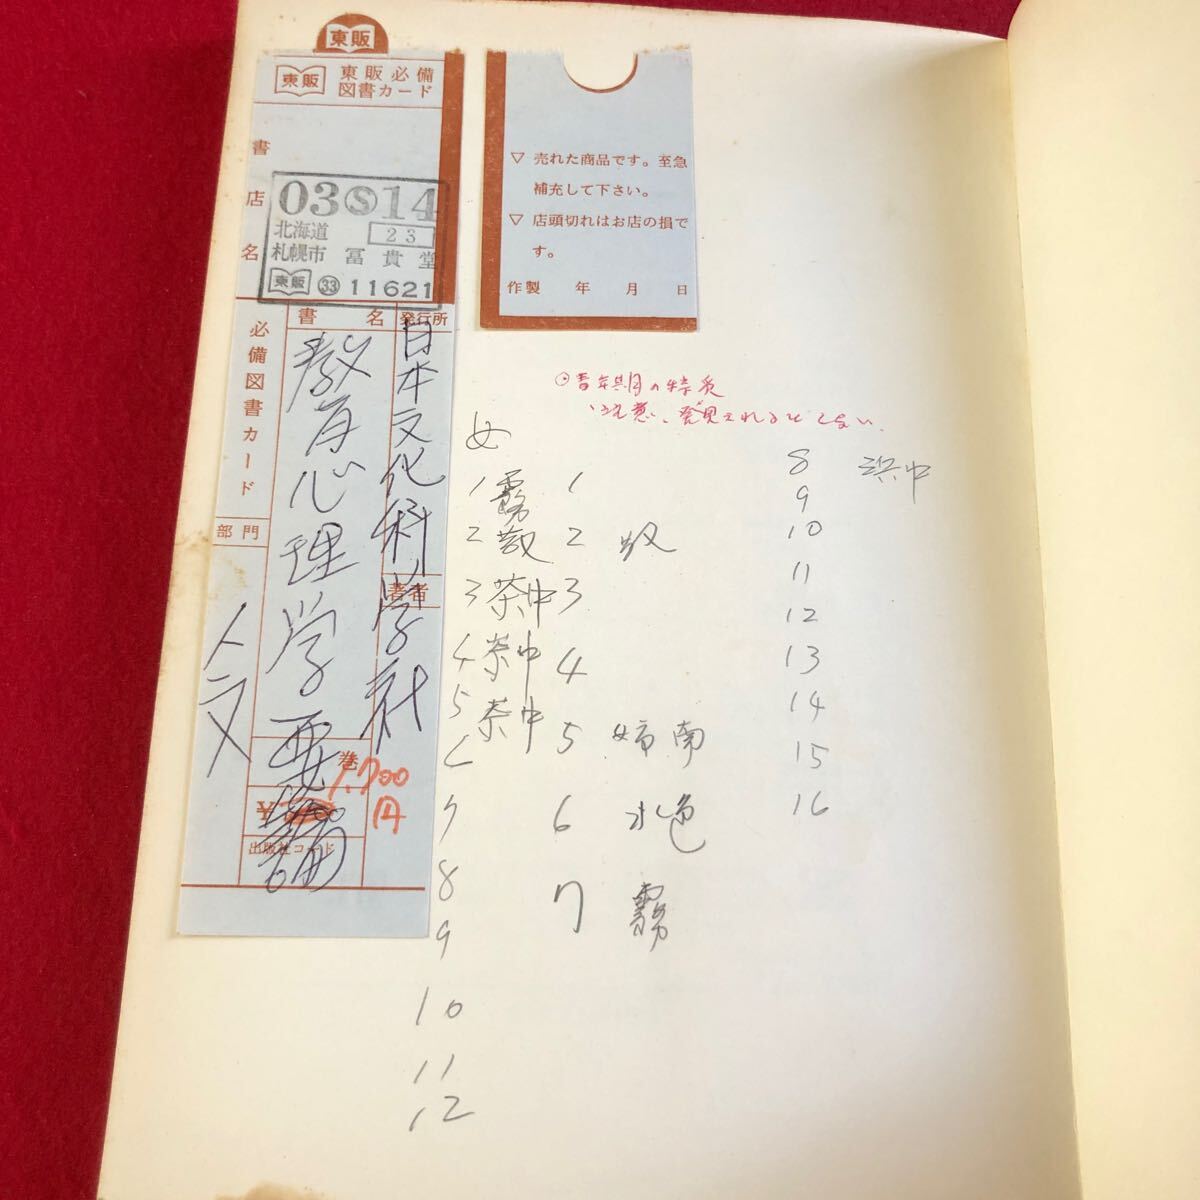 東販
東販 東販必備
図書カード
書店名
03 S 14
北海道 23
札幌市 冨貴堂
東販 ㉝ 11621
必備図書カード
書名
教育心理学要論
発行所
日本文化科学社
著者
部門
人文
巻
¥
1,700
円
出版社コード
▽ 売れた商品です。至急
補充して下さい。
▽ 店頭切れはお店の損で
す。
作製 年 月 日
◎青年期の特質
女
1 霧
2
3 茶中
4 茶中
5 茶中
6
7
8
9
10
11
12
1
2
3
4
5 姉南
6 水色
7 霧
8 浜中
9
10
11
12
13
14
15
16